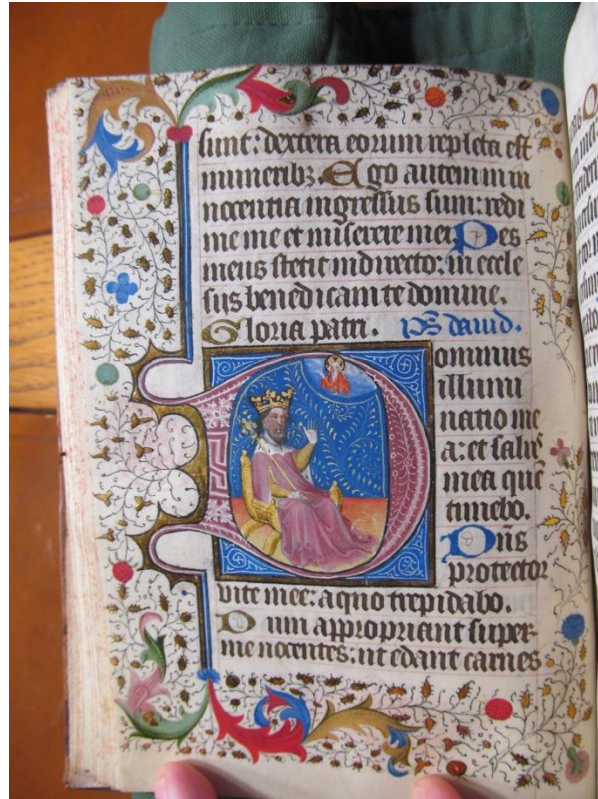 sunt: dextera eorum repleta est
muneribz. Ego autem in in
nocentia ingressus sum: redi
me me et miserere mei. Pes
meus stetit in directo: in eccle
siis benedicam te domine.
Gloria patri. Ps dauid.
Dominus
illumi
natio me
a: et salus
mea que
timebo.
Dns
protector
vite mee: a quo trepidabo.
Dum appropriant super
me nocentes: ut edant carnes